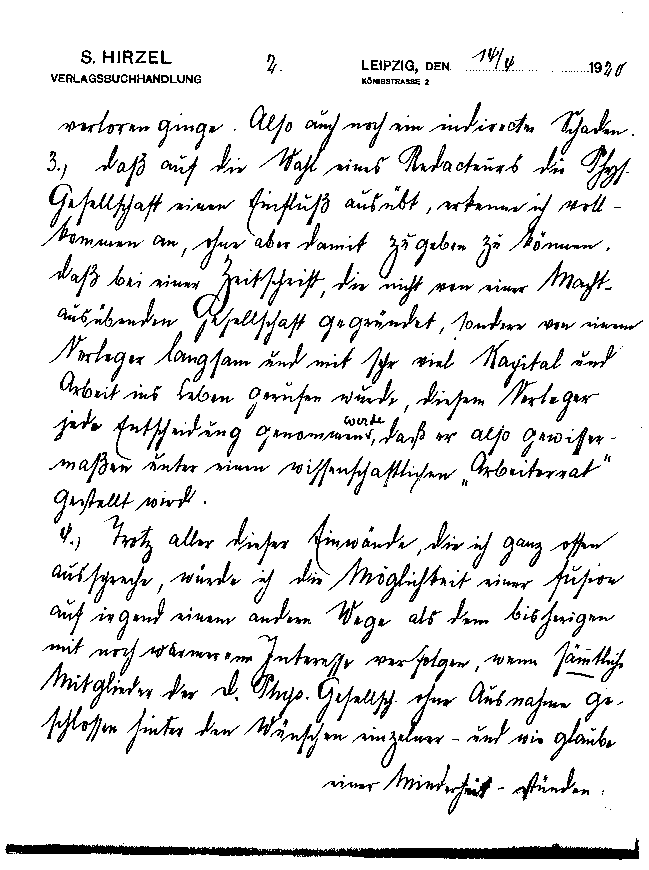 S. HIRZEL
VERLAGSBUCHHANDLUNG
2.
LEIPZIG, DEN 14/4 1920
KÖNIGSTRASSE 2
verloren ginge. Also auch noch ein indirecter Schaden.
3.) daß auf die Wahl eines Redacteurs die Phys.
Gesellschaft einen Einfluß ausübt, erkenne ich voll-
kommen an, ohne aber damit zugeben zu können,
daß bei einer Zeitschrift, die nicht von einer Macht-
ausübenden Gesellschaft gegründet, sondern von einem
Verleger langsam und mit sehr viel Kapital und
Arbeit ins Leben gerufen wurde, diesem Verleger
jede Entscheidung genommen werde, daß er also gewisser-
maßen unter einen wissenschaftlichen „Arbeiterrat“
gestellt wird.
4.) Trotz aller dieser Einwände, die ich ganz offen
ausspreche, würde ich die Möglichkeit einer Fusion
auf irgend einem andern Wege als dem bisherigen
mit noch wärmerem Interesse verfolgen, wenn sämtliche
Mitglieder der D. Phys. Gesellsch. ohne Ausnahme ge-
schlossen hinter den Wünschen einzelner – und wie glaube
einer Minderheit – stünden.